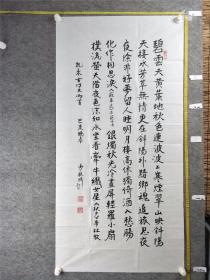 碧雲天黄葉地秋色連波波上寒煙翠山映斜陽
天接水芳草無情更在斜陽外黯鄉魂追旅思夜
夜除非好夢留人睡明月樓高休獨倚酒入愁腸
化作相思淚 銀燭秋光冷畫屏輕羅小扇
撲流螢天階夜色涼如水坐看牽牛織女星